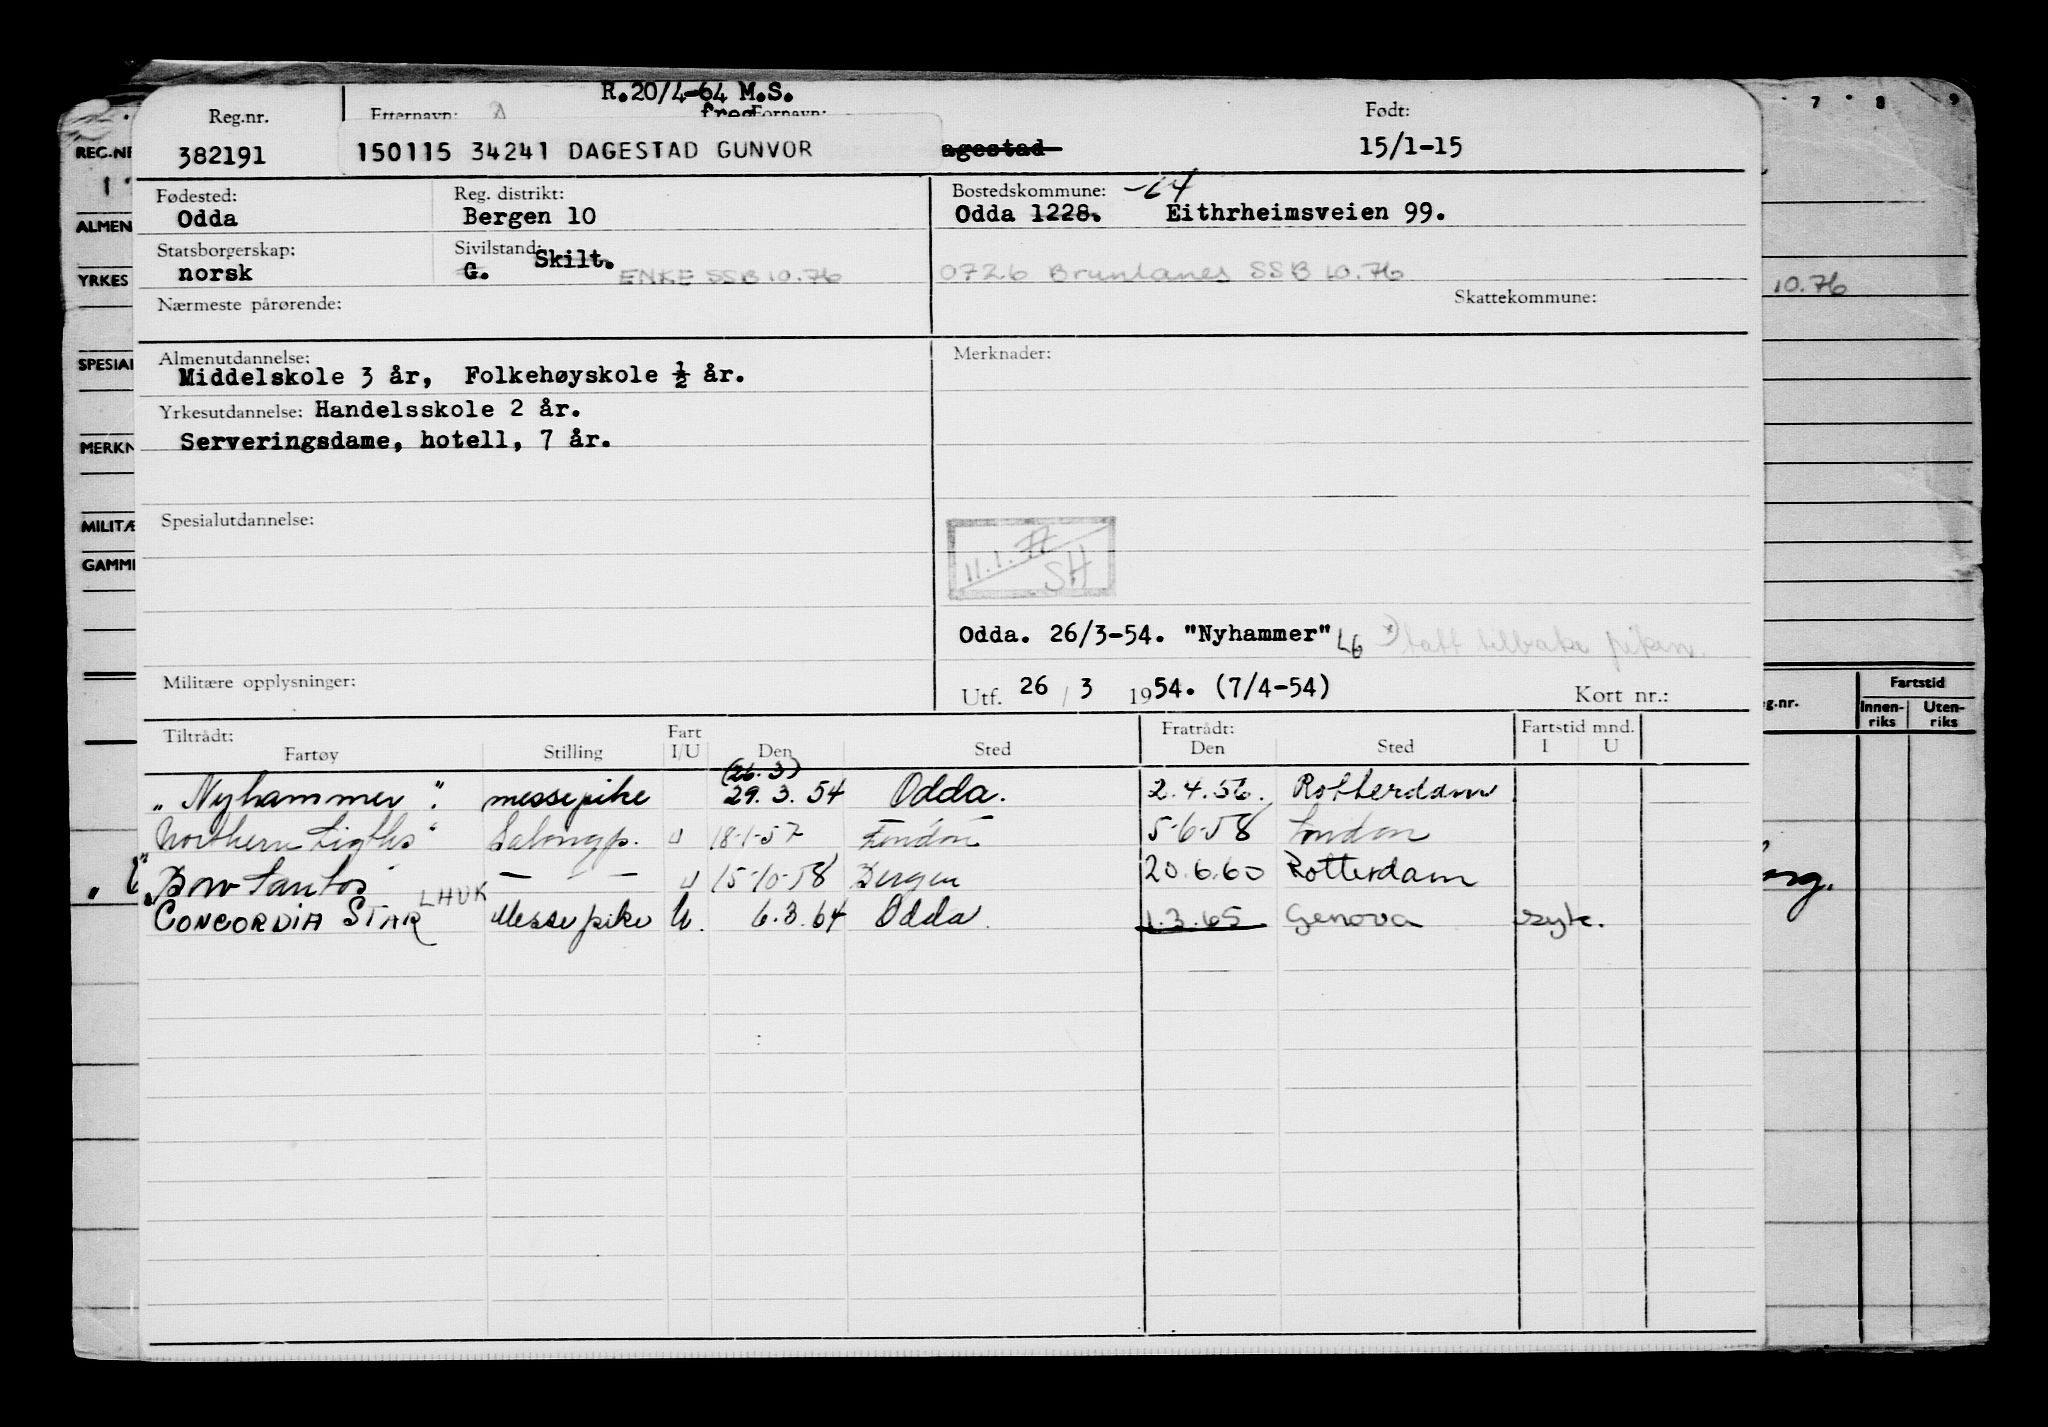 R.20/4-64 M.S.
Reg.nr. Etternavn: Fornavn: Født:
382191 150115 34241 DAGESTAD GUNVOR agestad 15/1-15
Fødested: Reg. distrikt: Bostedskommune: -64
Odda Bergen 10 Odda 1228. Eithrheimsveien 99.
Statsborgerskap: Sivilstand:
norsk G. Skilt. ENKE SSB 10.76 0726 Brunlanes SSB 10.76
Nærmeste pårørende: Skattekommune:
Almenutdannelse: Merknader:
Middelskole 3 år, Folkehøyskole ½ år.
Yrkesutdannelse: Handelsskole 2 år.
Serveringsdame, hotell, 7 år.
Spesialutdannelse:
11.1.77
SH
Odda. 26/3-54. "Nyhammer" LG tatt tilbake
Militære opplysninger: Utf. 26 / 3 1954. (7/4-54) Kort nr.:
Tiltrådt: Fart Fratrådt: Fartstid mnd.
Fartøy Stilling I/U Den Sted Den Sted I U
(26.3)
"Nyhammer". messepike 29.3.54 Odda. 2.4.56. Rotterdam
Northern Ligths" Salongp. U 18-1-57 London 5-6-58 London
"Bow Santos" LHUK — - — U 15-10-58 Bergen 20.6.60 Rotterdam
CONCORDIA STAR Messepike U. 6.3.64 Odda. 1.3.65 Genova syk.
REG.NR
ALMEN
YRKES
SPESIAL
MERKN
MILITÆ
GAMME
7 8 9
10.76
g.nr. Fartstid
Innen-riks Uten-riks